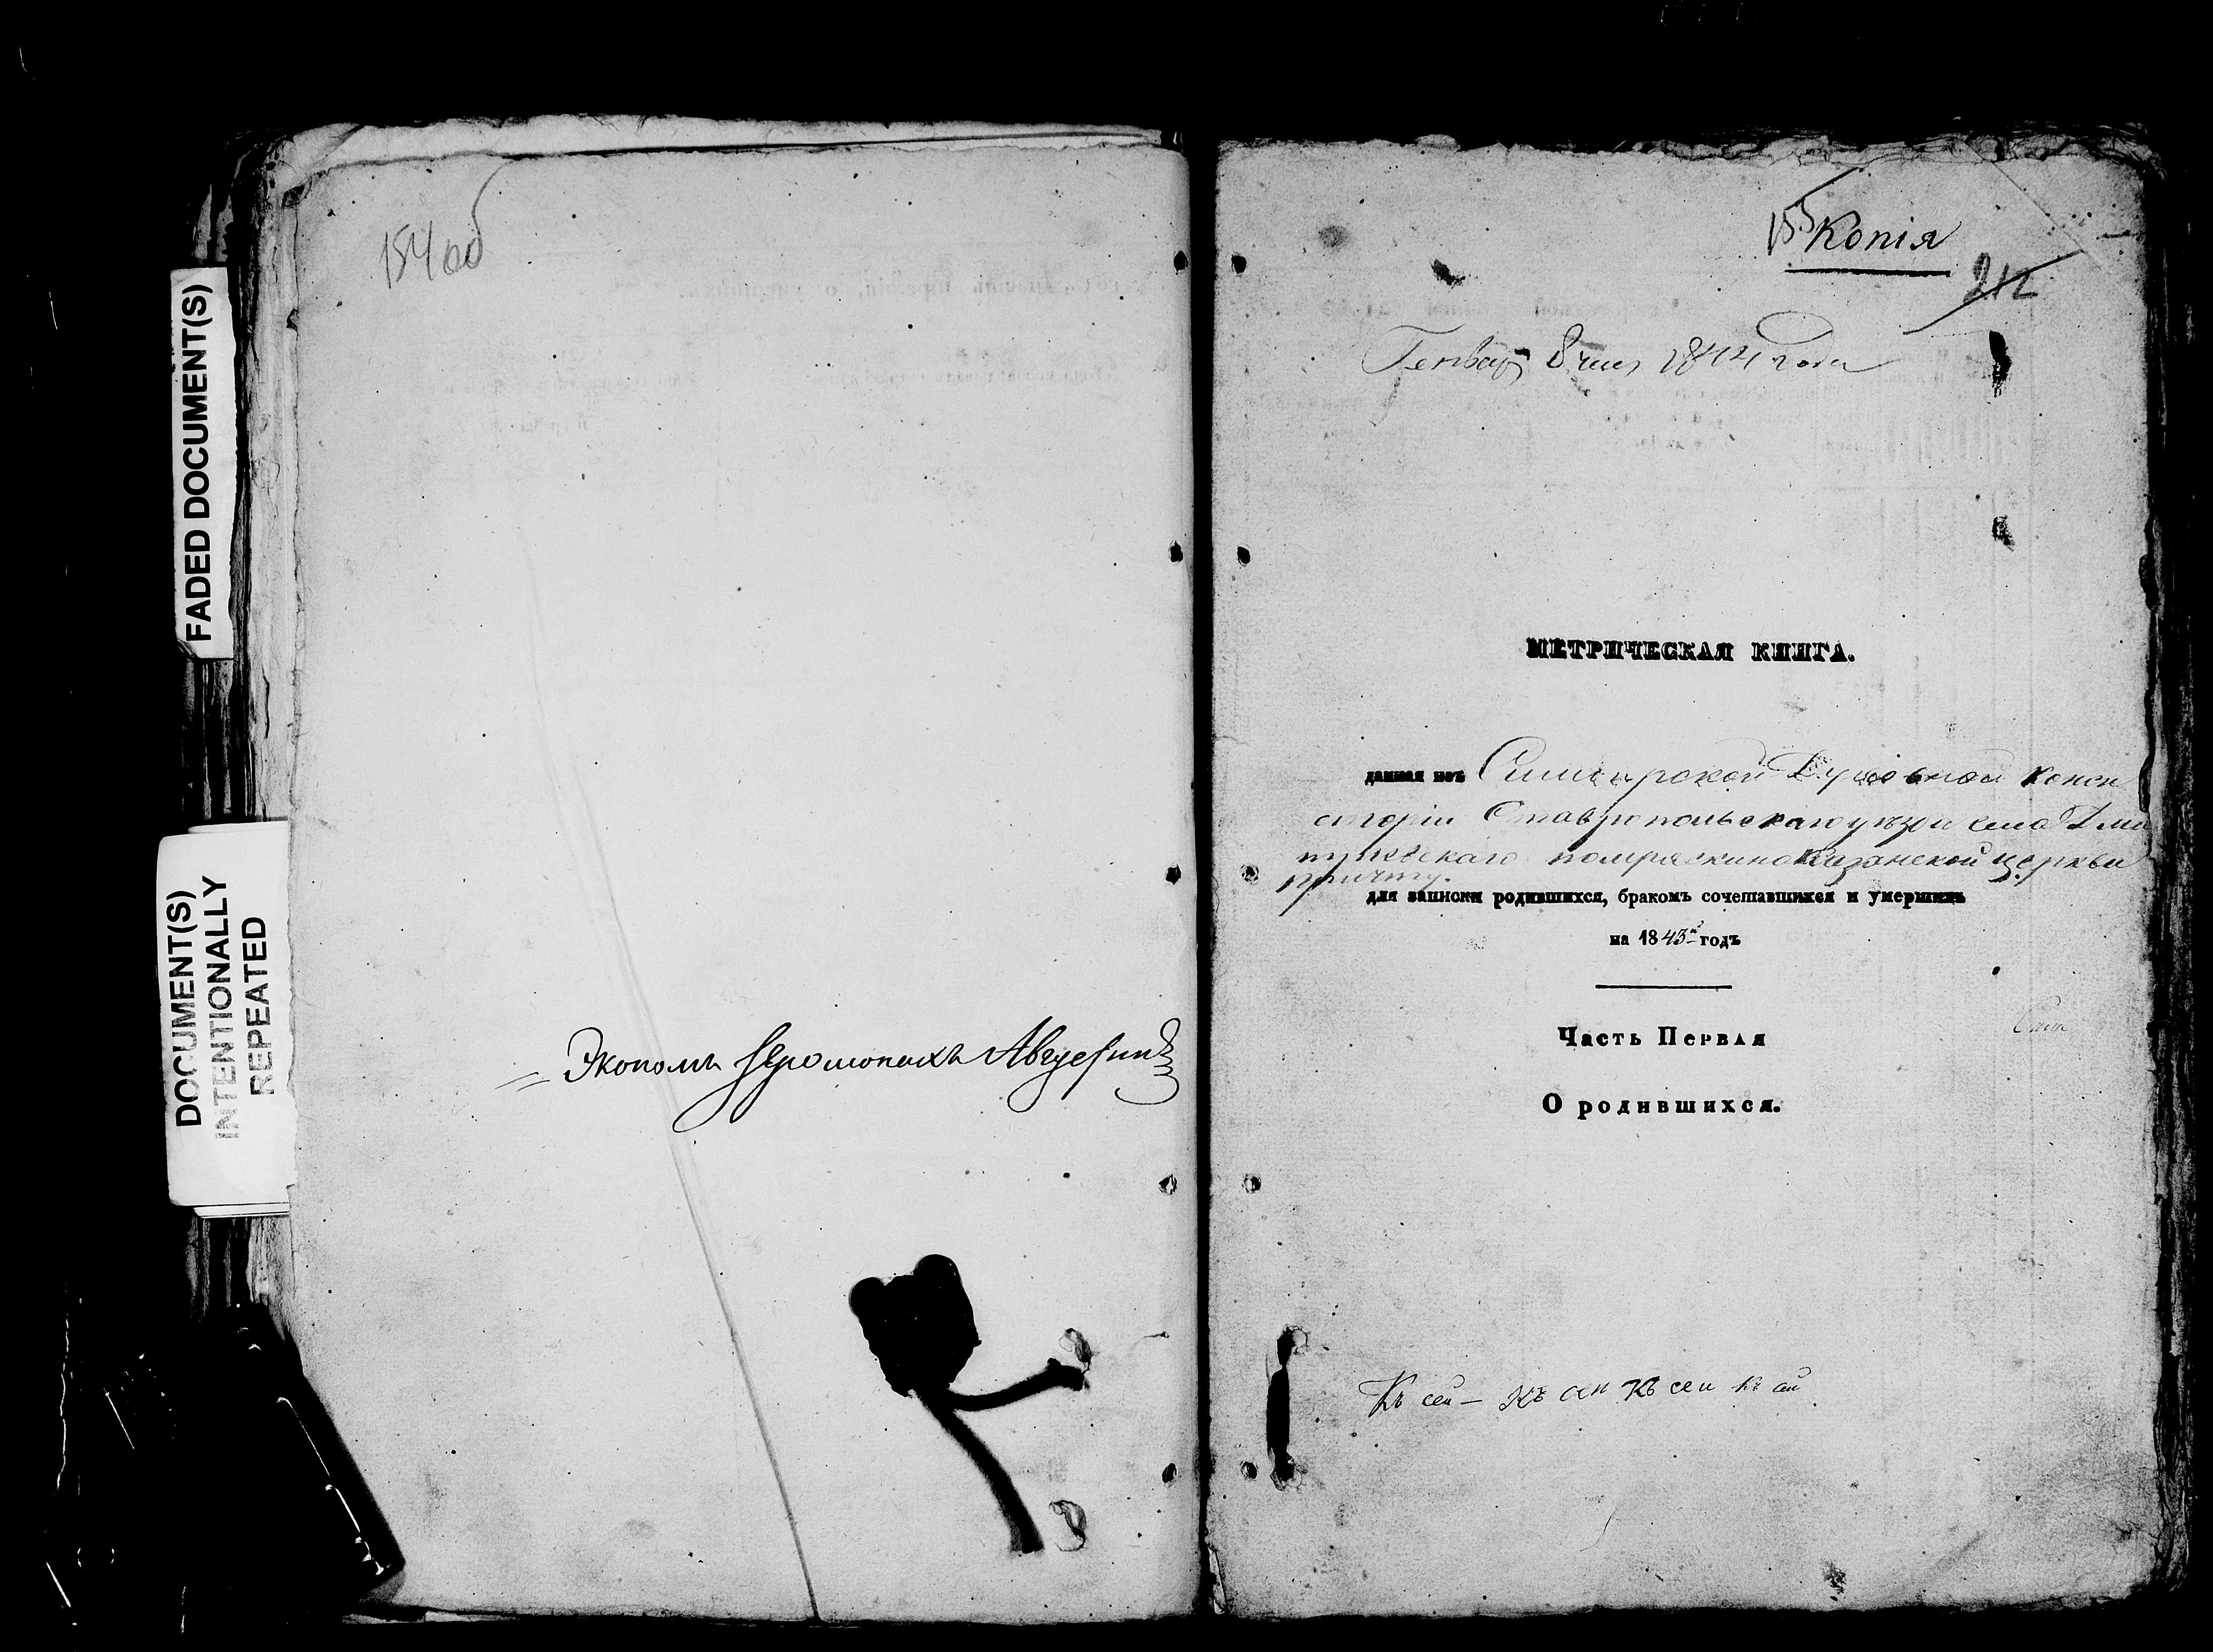 FADED DOCUMENT(S)
DOCUMENT(S)
INTENTIONALLY
REPEATED
154 об
Экономъ Іеромонахъ Августинъ
155 Копія
212
Генвар 8 чис 1844 года
МЕТРИЧЕСКАЯ КНИГА.
данная изъ Симбирской Духовной Конси
сторіи Ставропольскаго уѣзда села Дми
тріевскаго помряскино Казанской церкви
причту.
для записки родившихся, бракомъ сочетавшихся и умершихъ
на 1843й годъ
Часть Первая
О родившихся.
Къ сей — Къ сей Къ сей къ сей